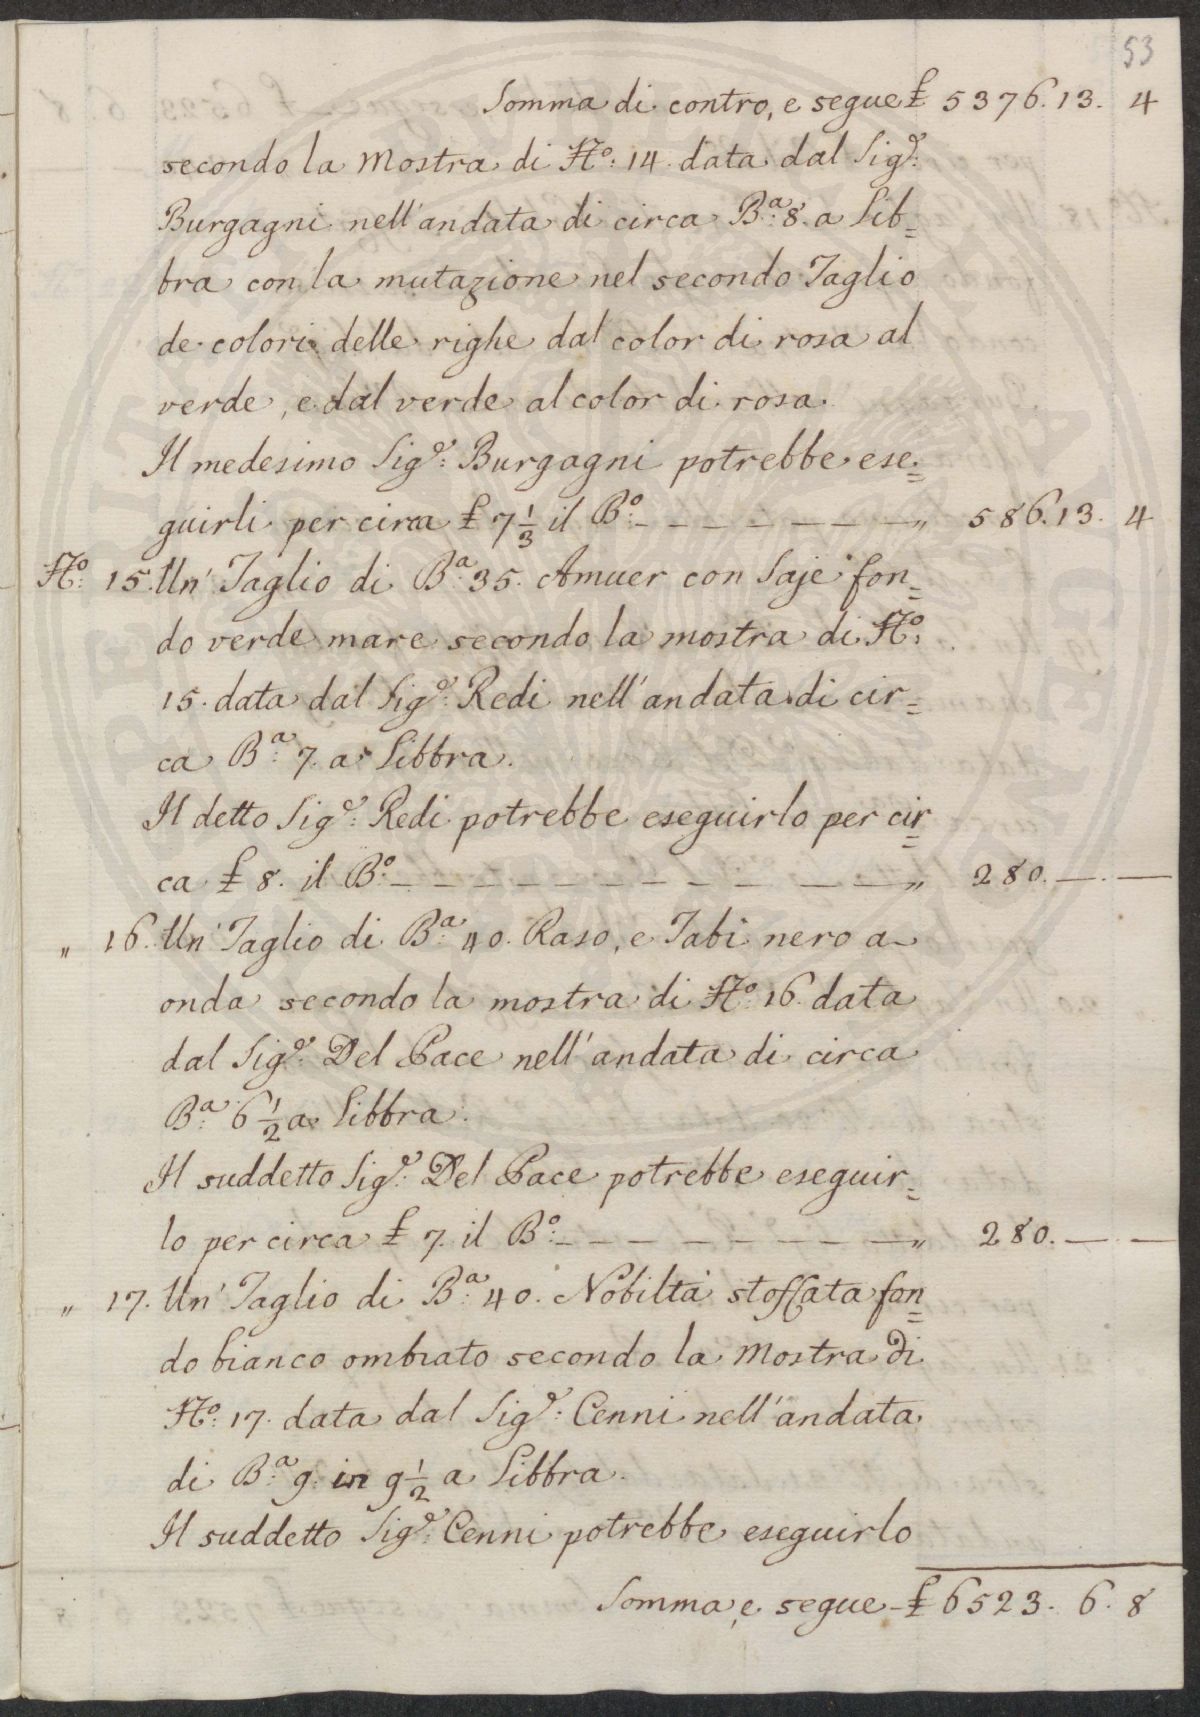 53
Somma di contro, e segue £ 5376.13. 4
secondo la Mostra di N.o: 14. data dal Sig.r:
Burgagni nell'andata di circa B.a: 8. a Lib=
bra con la mutazione nel secondo Taglio
de colori delle righe dal color di rosa al
verde, e dal verde al color di rosa.
Il medesimo Sig.r: Burgagni potrebbe ese=
guirli per circa £ 7 1/3 il B.o: _ _ _ _ _ _ _ „ 586.13. 4
N.o: 15. Un' Taglio di B.a: 35. Amuer con Saje fon=
do verde mare secondo la mostra di N.o:
15. data dal Sig.r: Redi nell'andata di cir=
ca B.a: 7. a Libbra.
Il detto Sig.r: Redi potrebbe eseguirlo per cir=
ca £ 8. il B.o: _ _ _ _ _ _ _ _ _ _ _ „ 280. — . —
„ 16. Un' Taglio di B.a: 40. Raso, e Tabi nero a
onda secondo la mostra di N.o: 16. data
dal Sig.r: Del Pace nell'andata di circa
B.a: 6 1/2 a Libbra.
Il suddetto Sig.r: Del Pace potrebbe eseguir=
lo per circa £ 7. il B.o: _ _ _ _ _ _ _ _ „ 280. — . —
„ 17. Un' Taglio di B.a: 40. Nobiltà stoffata fon=
do bianco ombrato secondo la Mostra di
N.o: 17. data dal Sig.r: Cenni nell'andata
di B.a: 9. in 9 1/2 a Libbra.
Il suddetto Sig.r: Cenni potrebbe eseguirlo
Somma, e segue - £ 6523. 6. 8